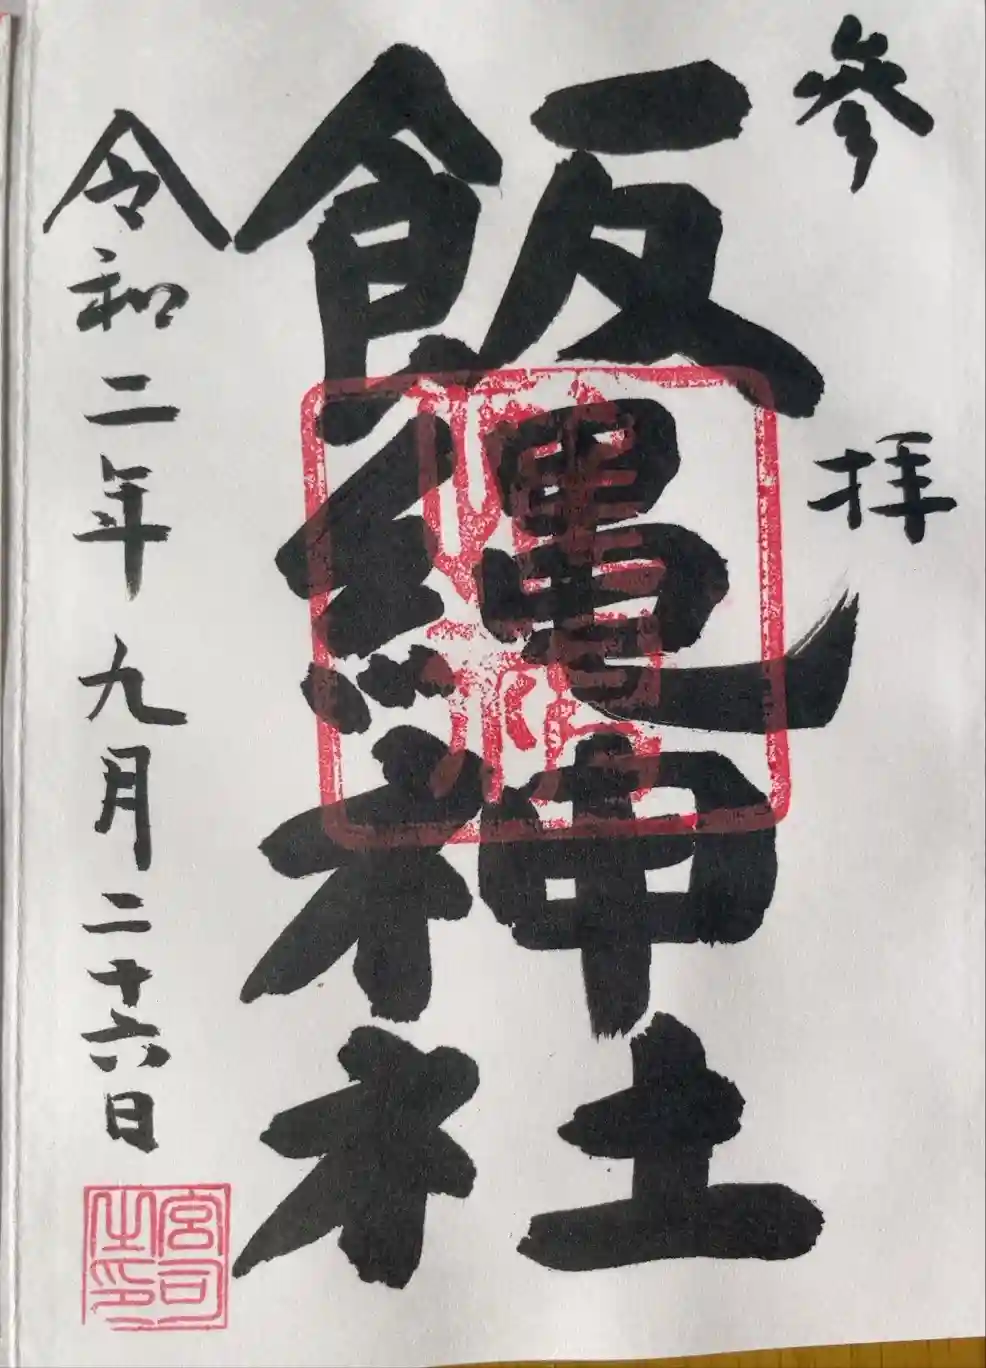 參拝
飯縄神社
令和二年九月二十六日
宮司之印